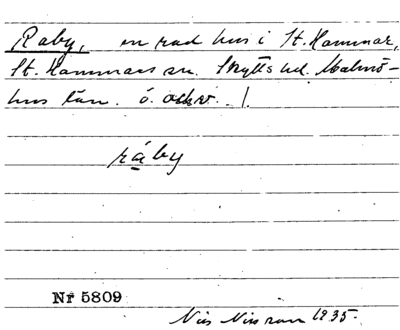 Råby, en rad hus i St. Hammar,
St. Hammars sn. Skytts hd. Malmö-
hus län. ö.
råby
Nr 5809
Nils Nilsson 1935.